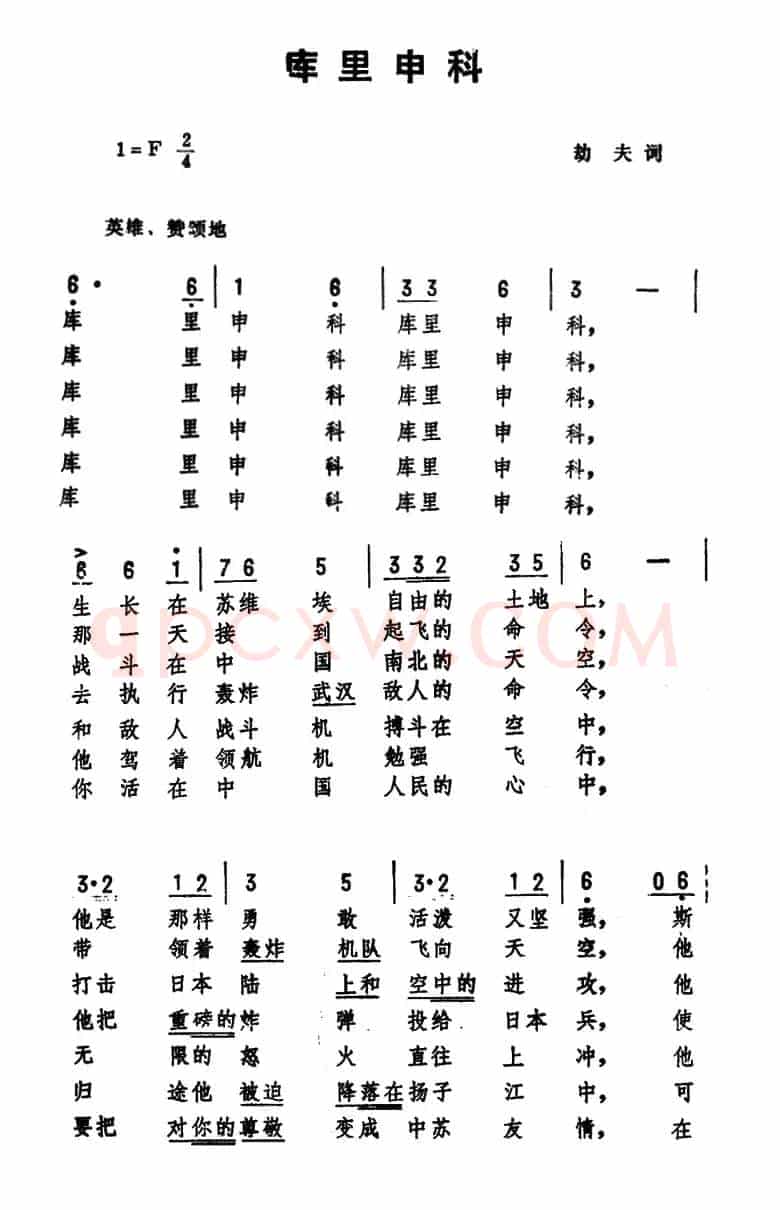 库里申科
1=F 2/4
劫夫词
英雄、赞颂地
6· 6 | 1 6 | 3 3 6 | 3 — |
库里申科库里申科,
库里申科库里申科,
库里申科库里申科,
库里申科库里申科,
库里申科库里申科,
库里申科库里申科,
6 6 1 | 7 6 5 | 3 3 2 3 5 | 6 — |
生长在苏维埃自由的土地上,
那一天接到起飞的命令,
战斗在中国南北的天空,
去执行轰炸武汉敌人的命令,
和敌人战斗机搏斗在空中,
他驾着领航机勉强飞行,
你活在中国人民的心中,
qpcxw.COM
3·2 1 2 | 3 5 | 3·2 1 2 | 6 0 6
他是那样勇敢活泼又坚强,斯
带领着轰炸机队飞向天空,他
打击日本陆上和空中的进攻,他
他把重磅的炸弹投给日本兵,使
无限的怒火直往上冲,他
归途他被迫降落在扬子江中,可
要把对你的尊敬变成中苏友情,在